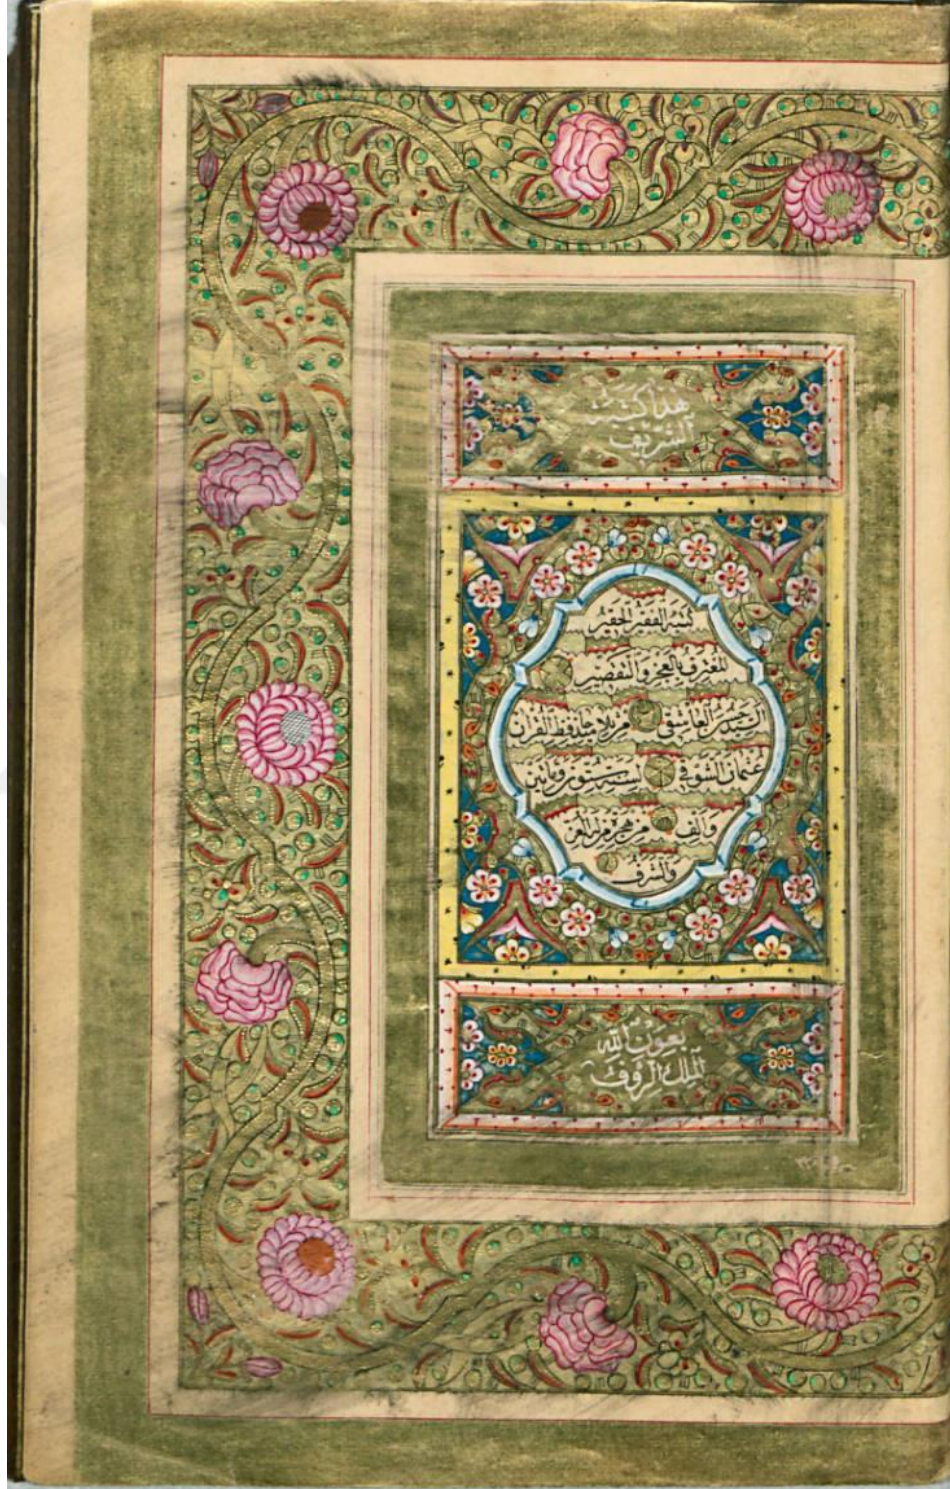 هذا كتبت
الشريف
كتبه الفقير الحقير
المعترف بالعجز والتقصير
السيد حسن العاشقي من تلاميذ حافظ القرآن
عثمان الشوقي لسنة ستين ومأتين
وألف من هجرة من له العز
والشرف
بعون الله
الملك الرؤف